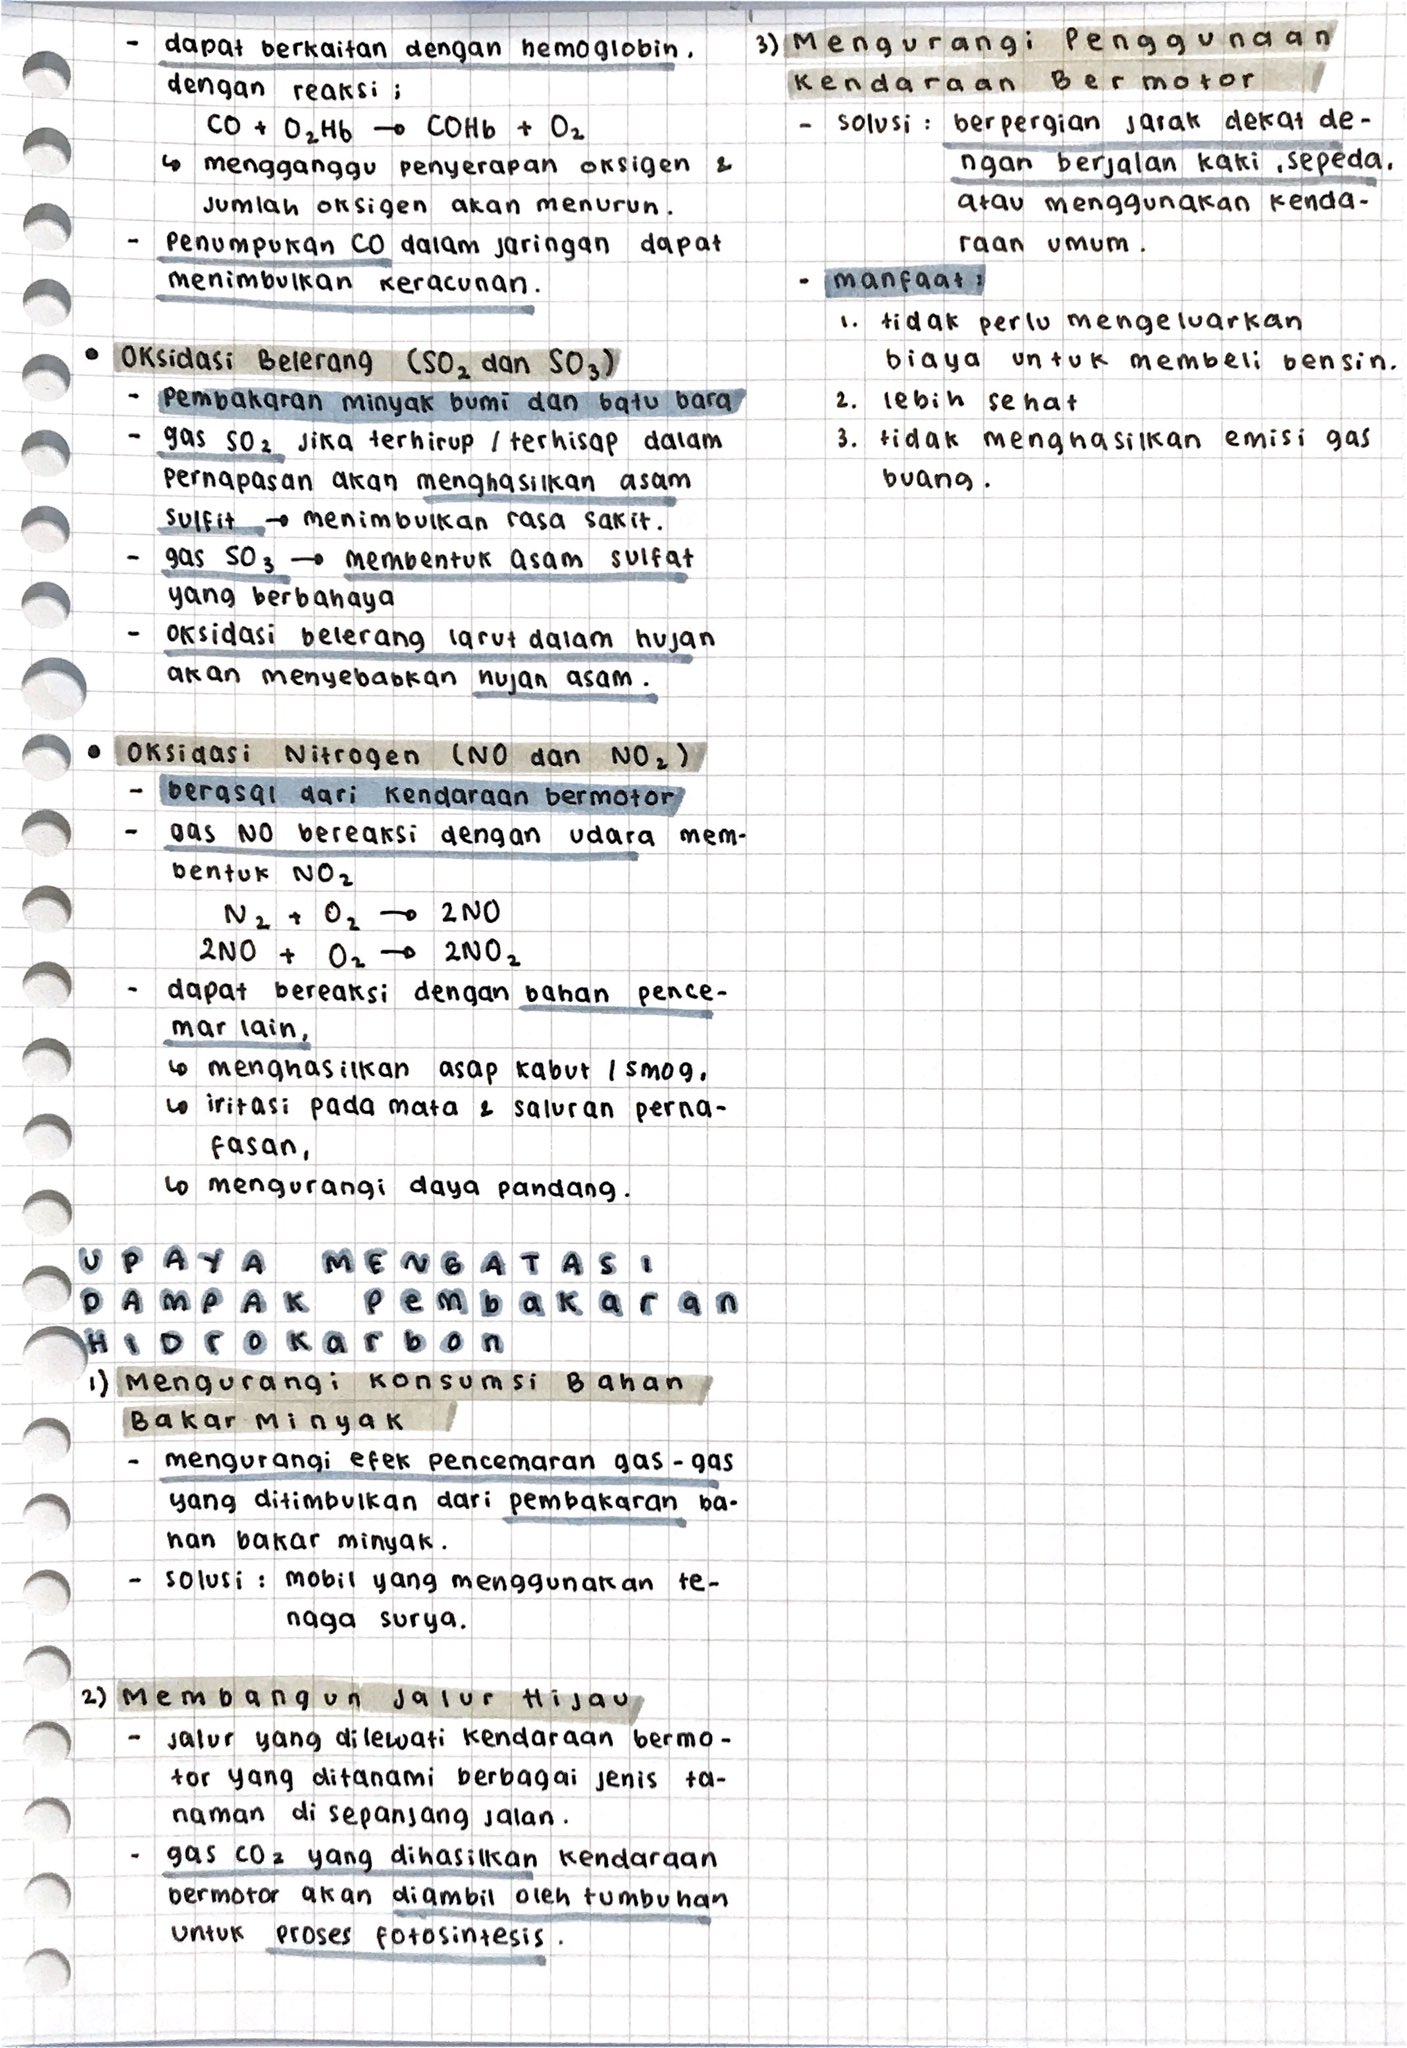 - dapat berkaitan dengan hemoglobin.
dengan reaksi ;
CO + O₂Hb → COHb + O₂
↳ mengganggu penyerapan oksigen &
jumlah oksigen akan menurun.
- penumpukan CO dalam jaringan dapat
menimbulkan keracunan.
• Oksidasi Belerang (SO₂ dan SO₃)
- pembakaran minyak bumi dan batu bara
- gas SO₂ jika terhirup / terhisap dalam
pernapasan akan menghasilkan asam
sulfit → menimbulkan rasa sakit.
- gas SO₃ → membentuk asam sulfat
yang berbahaya
- oksidasi belerang larut dalam hujan
akan menyebabkan hujan asam.
• Oksidasi Nitrogen (NO dan NO₂)
- berasal dari kendaraan bermotor
- gas NO bereaksi dengan udara mem-
bentuk NO₂
N₂ + O₂ → 2NO
2NO + O₂ → 2NO₂
- dapat bereaksi dengan bahan pence-
mar lain,
↳ menghasilkan asap kabut / smog,
↳ iritasi pada mata & saluran perna-
fasan,
↳ mengurangi daya pandang.
UPAYA MENGATASI
DAMPAK Pembakaran
HIDrokarbon
1) Mengurangi Konsumsi Bahan
Bakar Minyak
- mengurangi efek pencemaran gas-gas
yang ditimbulkan dari pembakaran ba-
han bakar minyak.
- solusi : mobil yang menggunakan te-
naga surya.
2) Membangun Jalur Hijau
- jalur yang dilewati kendaraan bermo-
tor yang ditanami berbagai jenis ta-
naman di sepanjang jalan.
- gas CO₂ yang dihasilkan kendaraan
bermotor akan diambil oleh tumbuhan
untuk proses fotosintesis.
3) Mengurangi Penggunaan
Kendaraan Bermotor
- solusi : berpergian jarak dekat de-
ngan berjalan kaki, sepeda,
atau menggunakan kenda-
raan umum.
- manfaat :
1. tidak perlu mengeluarkan
biaya untuk membeli bensin.
2. lebih sehat
3. tidak menghasilkan emisi gas
buang.